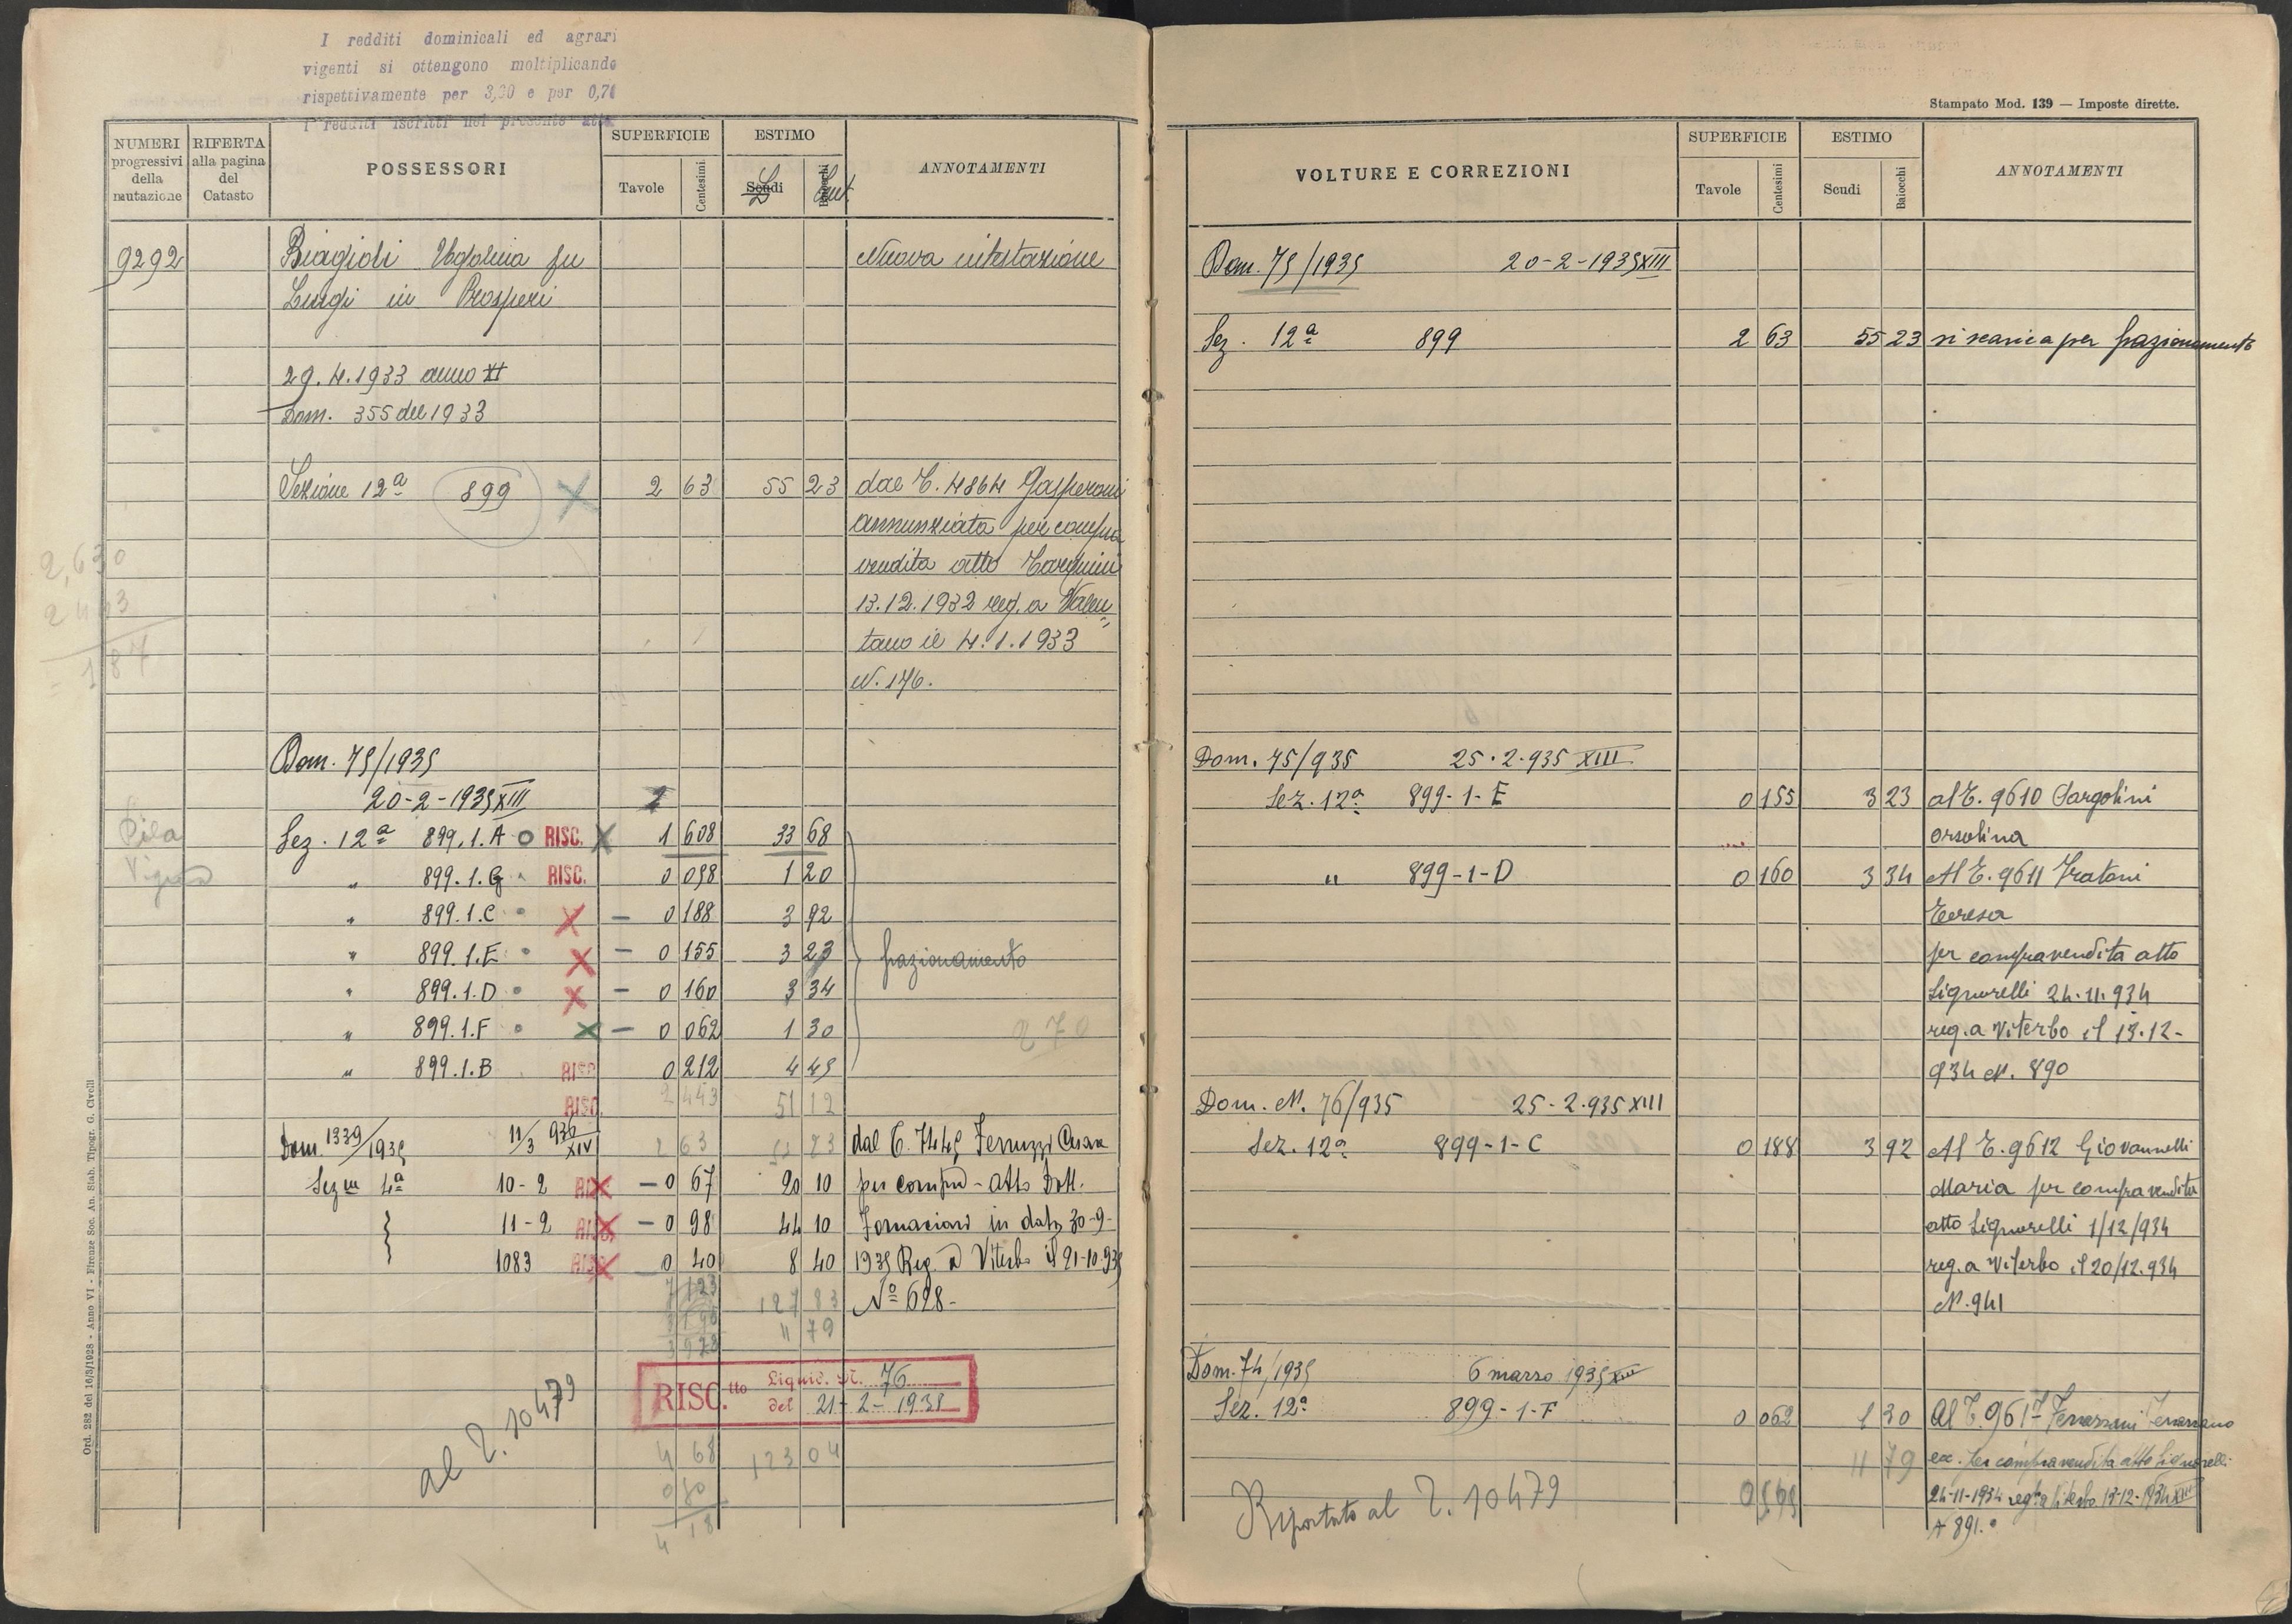 I redditi dominicali ed agrari
vigenti si ottengono moltiplicando
rispettivamente per 3,30 e per 0,70
i redditi iscritti nel presente atto.
NUMERI progressivi della mutazione
RIFERTA alla pagina del Catasto
POSSESSORI
SUPERFICIE
Tavole Centesimi
ESTIMO
Scudi Baiocchi
L. Cent
ANNOTAMENTI
9292 Biagioli Ugolina fu Nuova intestazione
Luigi in Prosperi
29.4.1933 anno XI
Dom. 355 del 1933
Sezione 12ª 899 2 63 55 23 dal T. 4864 Gasperoni
annunziata per compra
vendita atto Tarquini
13.12.1932 reg. a Valen=
tano il 4.1.1933
N. 176.
2,630
2443
= 187
Dom. 75/1935
20-2-1935 XIII
Pila
Vigna
Sez. 12ª 899.1.A RISC. 1 608 33 68
" 899.1.G RISC. 0 058 1 20
" 899.1.C 0 188 3 92
" 899.1.E 0 155 3 23 frazionamento
" 899.1.D 0 160 3 34
" 899.1.F 0 062 1 30 270
" 899.1.B RISC 0 212 4 45
RISC. 2 443 51 12
Dom. 1339/1935 11/3 936 XIV 2 63 dal T. 7445 Ferruzzi
Sezne 4ª 10-2 RISC 0 67 20 10 per compra - Atto Dott.
11-2 RISC. 0 98 44 10 Fornaciari in data 30-9-
1083 RISC 0 40 8 40 1935 Reg. a Viterbo il 21-10-935
127 83 Nº 628-
11 79
RISC.tto Liquid. N. 76
del 21-2-1938
al T. 10479
4 68 123 04
4 18
Ord. 282 del 16/3/1928 - Anno VI - Firenze Soc. An. Stab. Tipogr. G. Civelli
Stampato Mod. 139 — Imposte dirette.
VOLTURE E CORREZIONI
SUPERFICIE
Tavole Centesimi
ESTIMO
Scudi Baiocchi
ANNOTAMENTI
Dom. 75/1935 20-2-1935 XIII
Sez. 12ª 899 2 63 55 23 si scarica per frazionamento
Dom. 75/935 25.2.935 XIII
Sez. 12ª 899-1-E 0 155 3 23 al T. 9610 Sargolini
orsolina
" 899-1-D 0 160 3 34 Al T. 9611 Fratoni
Teresa
per compravendita atto
Signorelli 24.11.934
reg. a Viterbo il 13.12-
934 N. 890
Dom. N. 76/935 25-2-935 XIII
Sez. 12ª 899-1-C 0 188 3 92 Al T. 9612 Giovannelli
Maria per compravendita
atto Signorelli 1/12/934
reg. a Viterbo il 20/12.934
N. 941
Dom. 74/1935 6 marzo 1935 XIII
Sez. 12ª 899-1-F 0 062 1 30 Al T. 9617
11 79 ec. per compravendita atto Signorelli
24-11-1934 reg. a Viterbo 13-12-1934 XIII
N 891.
Riportato al T. 10479